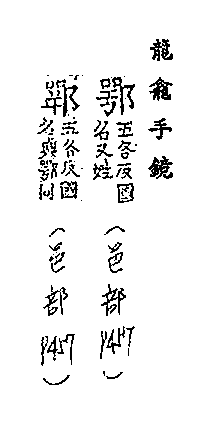 龍龕手鏡
鄂五各反國
名又姓
(邑部P457)
五各反國
名與鄂同
(邑部P457)